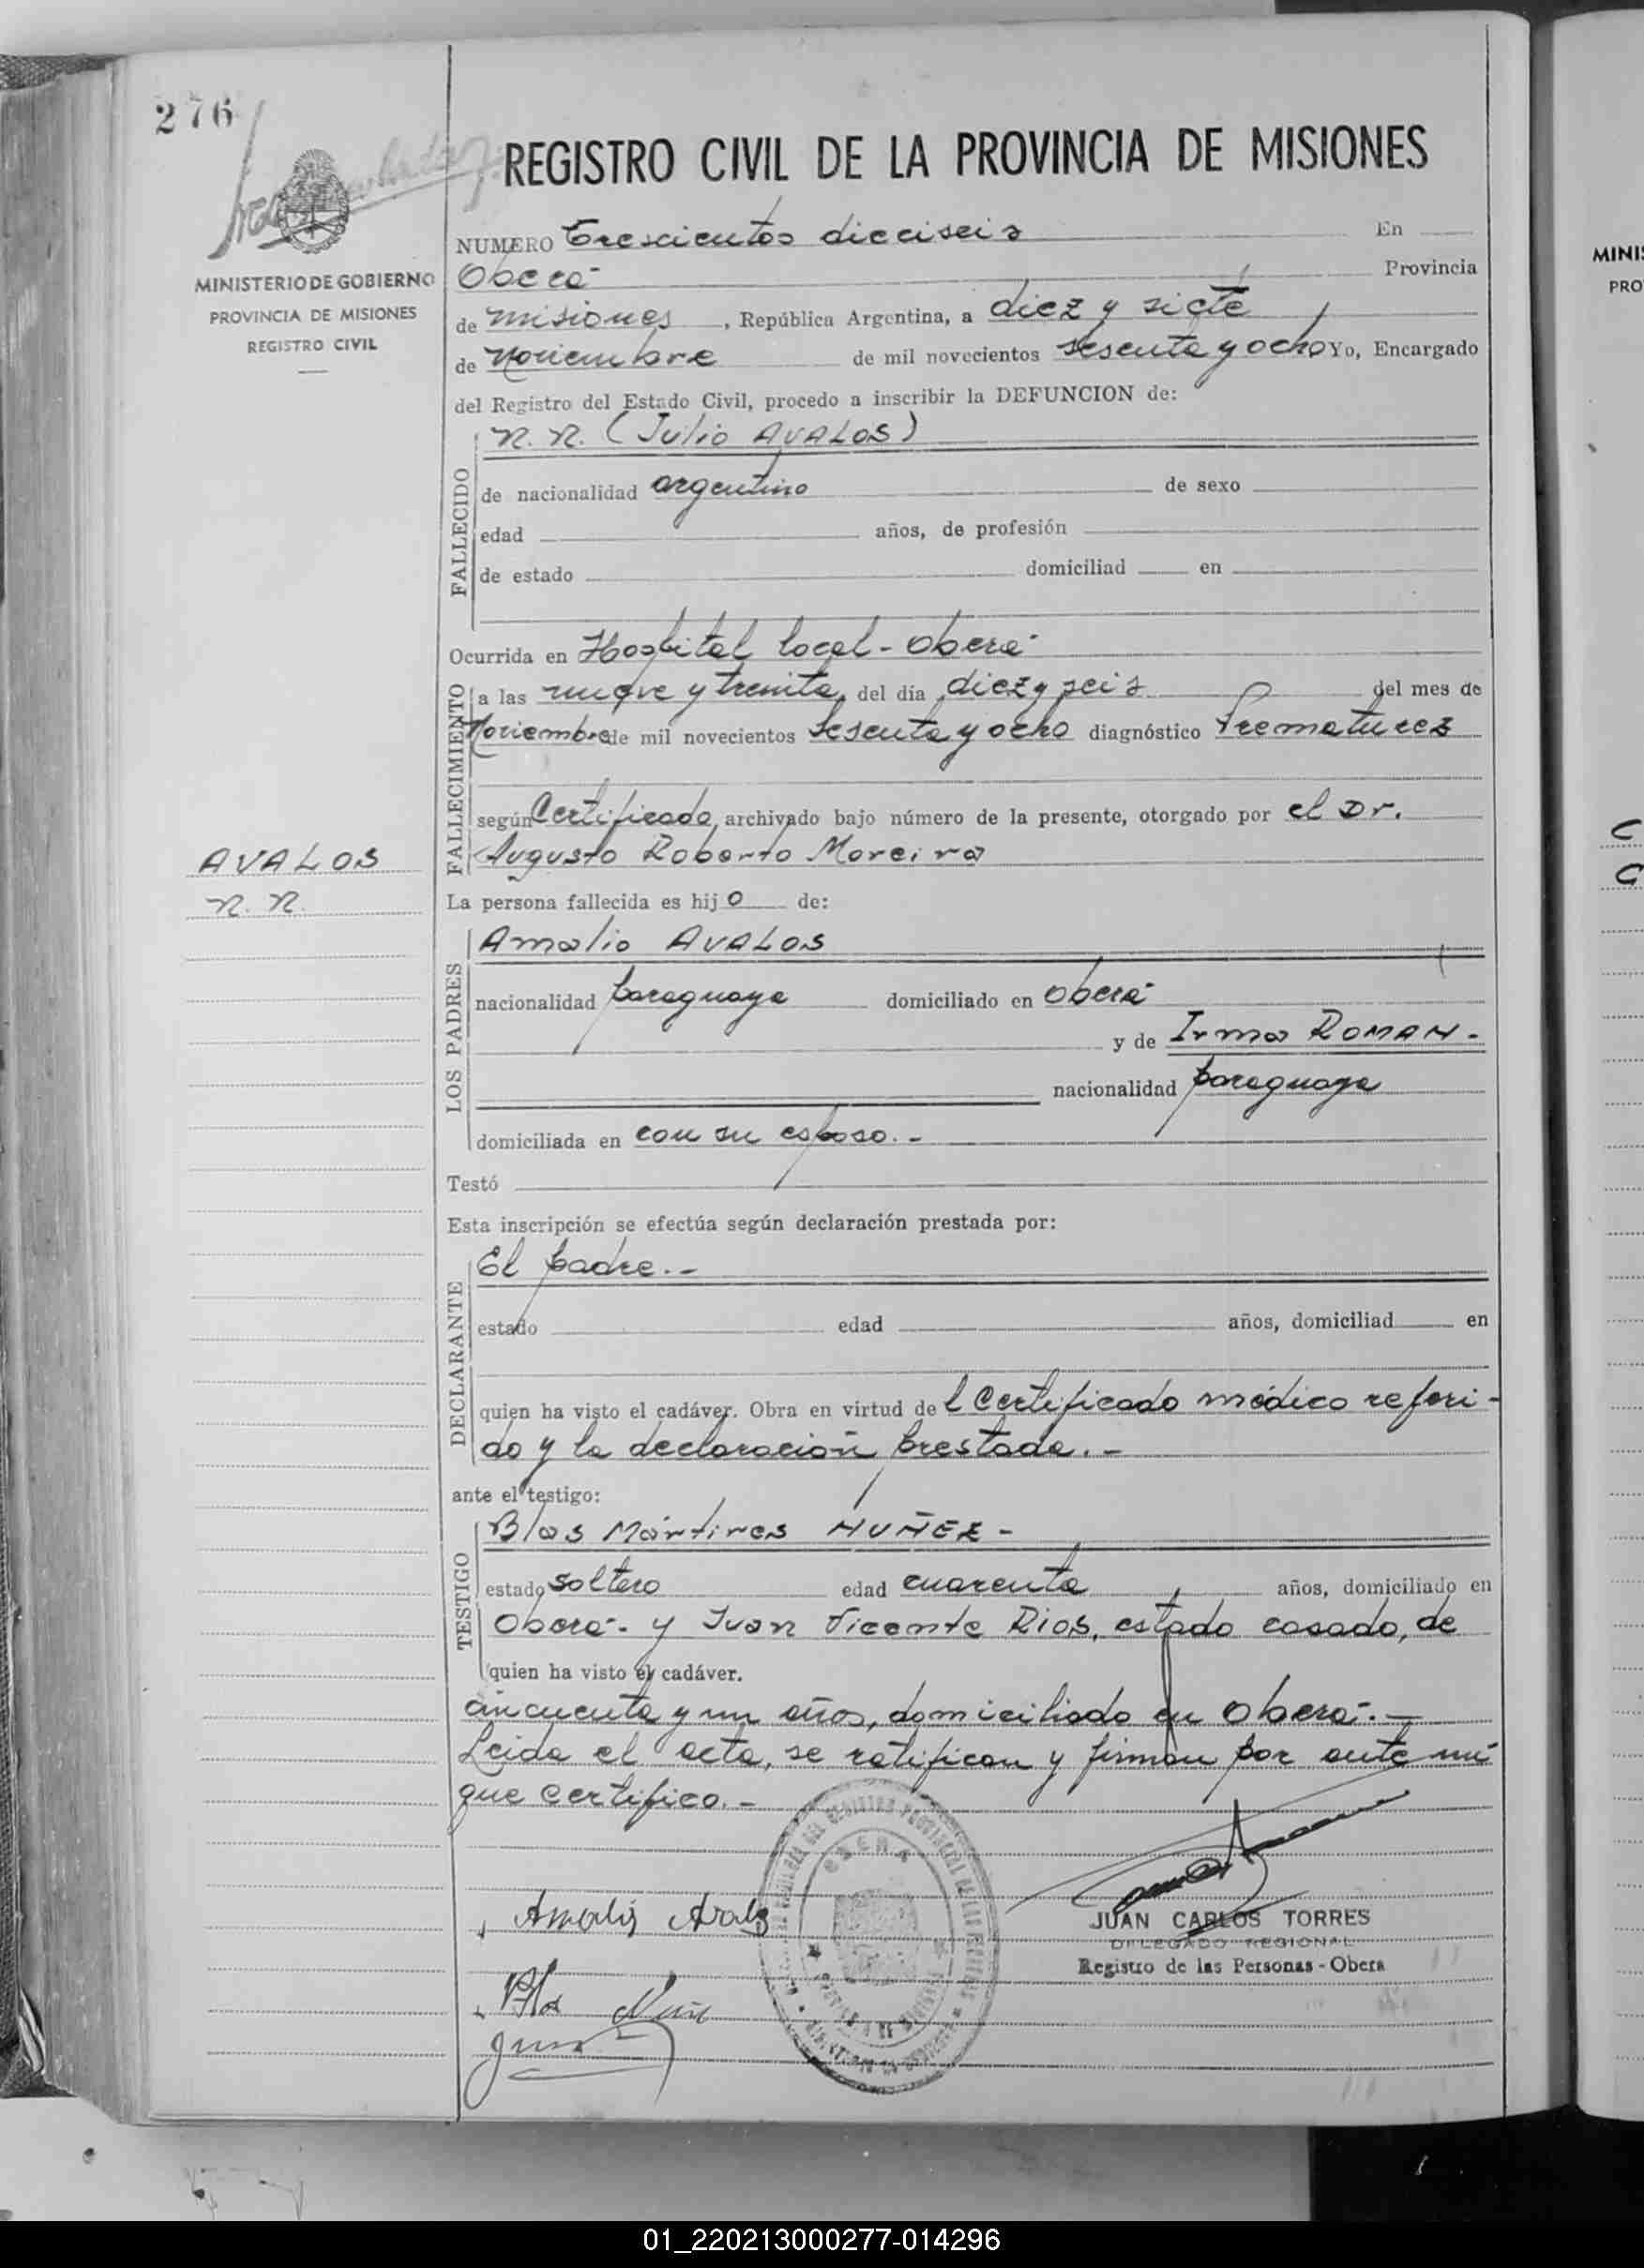 276
REGISTRO CIVIL DE LA PROVINCIA DE MISIONES
MINISTERIO DE GOBIERNO
PROVINCIA DE MISIONES
REGISTRO CIVIL
NUMERO Trescientos dieciseis En
Oberá Provincia
de Misiones, República Argentina, a diez y siete
de Noviembre de mil novecientos sesenta y ocho Yo, Encargado
del Registro del Estado Civil, procedo a inscribir la DEFUNCION de:
N. N. (Julio AVALOS)
FALLECIDO
de nacionalidad argentino de sexo
edad años, de profesión
de estado domiciliad en
Ocurrida en Hospital local - Oberá
FALLECIMIENTO
a las nueve y treinta, del día diez y seis del mes de
Noviembre de mil novecientos sesenta y ocho diagnóstico Prematurez
según Certificado, archivado bajo número de la presente, otorgado por el Dr.
Augusto Roberto Moreira
AVALOS
N. N.
La persona fallecida es hijo de:
LOS PADRES
Amalio AVALOS
nacionalidad paraguaya domiciliado en Oberá
y de Irma ROMAN.-
nacionalidad paraguaya
domiciliada en con su esposo.-
Testó
Esta inscripción se efectúa según declaración prestada por:
DECLARANTE
El padre.-
estado edad años, domiciliad en
quien ha visto el cadáver. Obra en virtud del Certificado médico referi-
do y la declaración prestada.-
ante el testigo:
TESTIGO
Blas Mártires NUÑEZ-
estado soltero edad cuarenta años, domiciliado en
Oberá- y Juan Vicente Rios, estado casado, de
quien ha visto el cadáver.
cincuenta y un años, domiciliado en Oberá.-
Leida el acta, se ratifican y firman por ante mi
que certifico.-
Amalio Avalos
Blas Nuñez
OBERA
JUAN CARLOS TORRES
DELEGADO REGIONAL
Registro de las Personas - Obera
MINIS
PRO
01_220213000277-014296